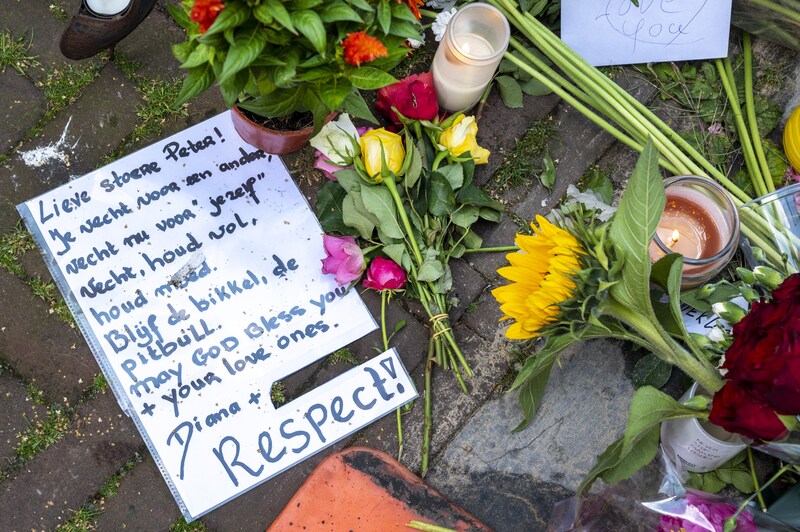 Lieve stoere Peter!
Je vecht voor een ander,
vecht nu voor "jezelf"
Vecht, houd vol,
houd moed.
Blijf de bikkel, de
pitbull.
may GOD Bless you
+ your love ones.
Diana +
Respect!
Love
you